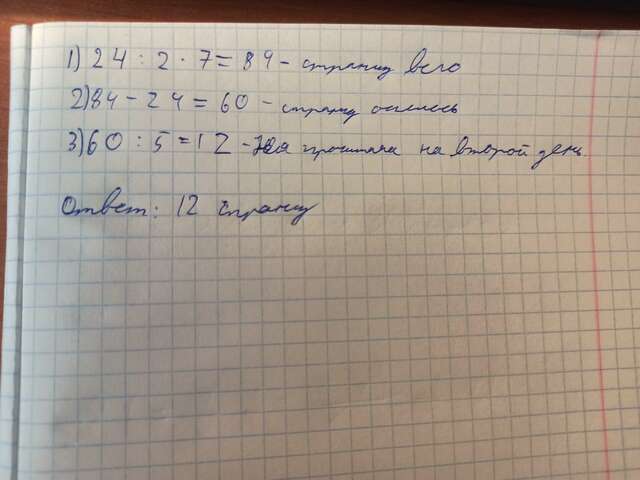 1) 24 : 2 · 7 = 84 - страниц всего
2) 84 - 24 = 60 - страниц осталось
3) 60 : 5 = 12 - прочитала на второй день.
Ответ: 12 страниц